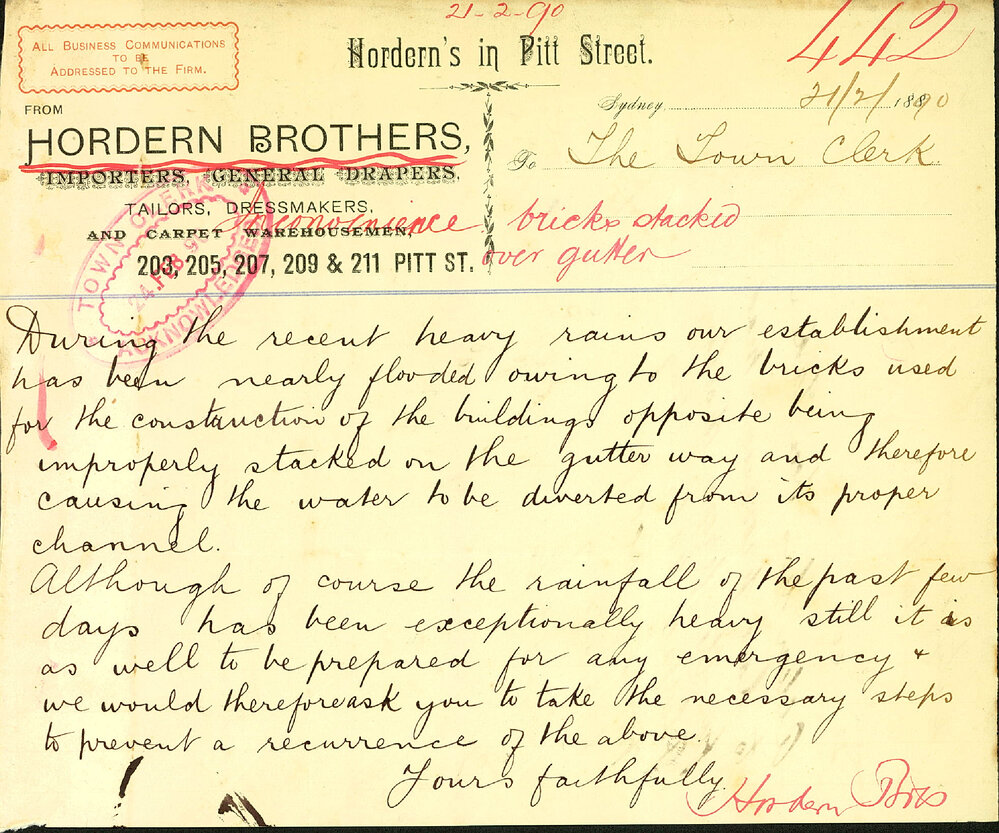 21-2-90
442
ALL BUSINESS COMMUNICATIONS
TO BE
ADDRESSED TO THE FIRM.
Hordern's in Pitt Street.
Sydney 21/2/1890
FROM
HORDERN BROTHERS,
IMPORTERS, GENERAL DRAPERS,
TAILORS, DRESSMAKERS,
AND CARPET WAREHOUSEMEN,
203, 205, 207, 209 & 211 PITT ST.
To The Town Clerk
Inconvenience bricks stacked
over gutter
TOWN CLERK
24 FEB 90
ACKNOWLEDGED
During the recent heavy rains our establishment
has been nearly flooded owing to the bricks used
for the construction of the buildings opposite being
improperly stacked on the gutter way and therefore
causing the water to be diverted from its proper
channel.
Although of course the rainfall of the past few
days has been exceptionally heavy still it is
as well to be prepared for any emergency &
we would therefore ask you to take the necessary steps
to prevent a recurrence of the above.
Yours faithfully
Hordern Bros